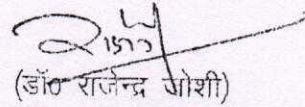 (डॉ0 राजेन्द्र जोशी)